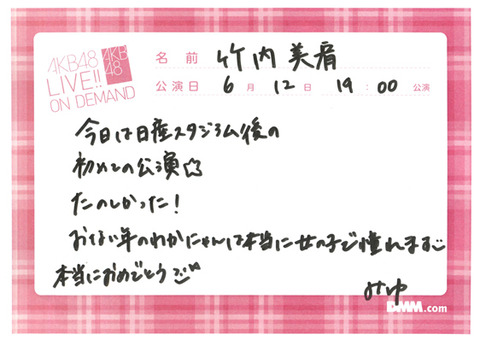 AKB48
LIVE!!
ON DEMAND
AKB
48
名前 竹内美宥
公演日 6月12日 19:00 公演
今日は日産スタジアム後の
初めての公演☆
たのしかった!
おない年のわかにゃんは本当に女の子で憧れます
本当におめでとう
みゆ
DMM.com